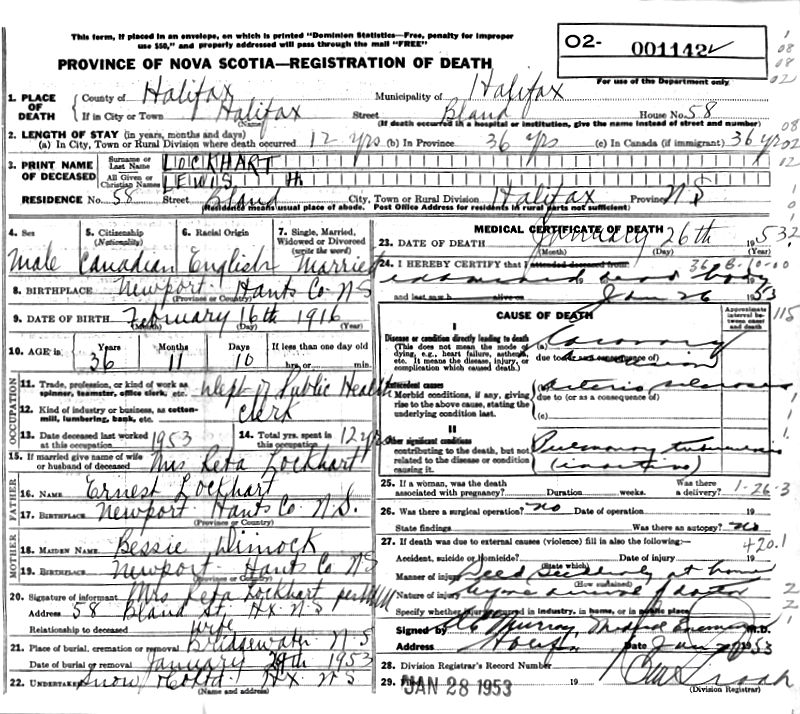 This form, if placed in an envelope, on which is printed "Dominion Statistics—Free, penalty for improper
use $50," and properly addressed will pass through the mail "FREE"
O2- 001142
PROVINCE OF NOVA SCOTIA—REGISTRATION OF DEATH
For use of the Department only
1. PLACE OF DEATH County of Halifax Municipality of Halifax
If in City or Town Halifax (Name) Street Bland House No. 58
(If death occurred in a hospital or institution, give the name instead of street and number)
2. LENGTH OF STAY (in years, months and days)
(a) In City, Town or Rural Division where death occurred 12 yrs (b) In Province 36 yrs (c) In Canada (if immigrant) 36 yrs
3. PRINT NAME OF DECEASED Surname or Last Name LOCKHART
All Given or Christian Names LEWIS H.
RESIDENCE No. 58 Street Bland City, Town or Rural Division Halifax Province N S
(Residence means usual place of abode. Post Office Address for residents in rural parts not sufficient)
4. Sex 5. Citizenship (Nationality) 6. Racial Origin 7. Single, Married, Widowed or Divorced (write the word)
Male Canadian English Married
8. BIRTHPLACE Newport Hants Co N S
(Province or Country)
9. DATE OF BIRTH February 16th 1916
(Month) (Day) (Year)
10. AGE in Years Months Days If less than one day old
36 11 10 hrs. or min.
OCCUPATION
11. Trade, profession, or kind of work as spinner, teamster, office clerk, etc. Dept of Public Health
12. Kind of industry or business, as cotton-mill, lumbering, bank, etc. Clerk
13. Date deceased last worked at this occupation 1953 14. Total yrs. spent in this occupation 12 yrs
15. If married give name of wife or husband of deceased Mrs Reta Lockhart
FATHER
16. NAME Ernest Lockhart
17. BIRTHPLACE Newport Hants Co. N.S.
(Province or Country)
MOTHER
18. MAIDEN NAME Bessie Dimock
19. BIRTHPLACE Newport Hants Co N S
(Province or Country)
20. Signature of informant Mrs Reta Lockhart per
Address 58 Bland St. Hx N S
Relationship to deceased wife
21. Place of burial, cremation or removal Bridgewater N-S
Date of burial or removal January 29th 1953
22. Undertaker Snow & Co Ltd. Hx N S
(Name and address)
MEDICAL CERTIFICATE OF DEATH
23. DATE OF DEATH January 26th 1953
(Month) (Day) (Year)
24. I HEREBY CERTIFY that I attended deceased from
examined dead body
and last saw h alive on Jan 26 1953
CAUSE OF DEATH
Approximate interval between onset and death
I
Disease or condition directly leading to death
(This does not mean the mode of dying, e.g., heart failure, asthenia, etc. It means the disease, injury, or complication which caused death.)
(a) Coronary occlusion
due to (or as a consequence of)
Antecedent causes
Morbid conditions, if any, giving rise to the above cause, stating the underlying condition last.
(b) Arterio sclerosis
due to (or as a consequence of)
(c)
II
Other significant conditions
contributing to the death, but not related to the disease or condition causing it.
Pulmonary tuberculosis
(inactive)
25. If a woman, was the death associated with pregnancy? Duration weeks. Was there a delivery? 1-26-3
26. Was there a surgical operation? no Date of operation 19
State findings Was there an autopsy? no
27. If death was due to external causes (violence) fill in also the following:—
420.1
Accident, suicide or homicide? Date of injury 19
(State which)
Manner of injury Died suddenly at home
(How sustained)
Nature of injury before arrival of doctor
Specify whether injury occurred in industry, in home, or in public place
Signed by Murray, Medical Examiner M.D.
Address Halifax Date Jan 1953
28. Division Registrar's Record Number
29. Filed JAN 28 1953 19
(Division Registrar)